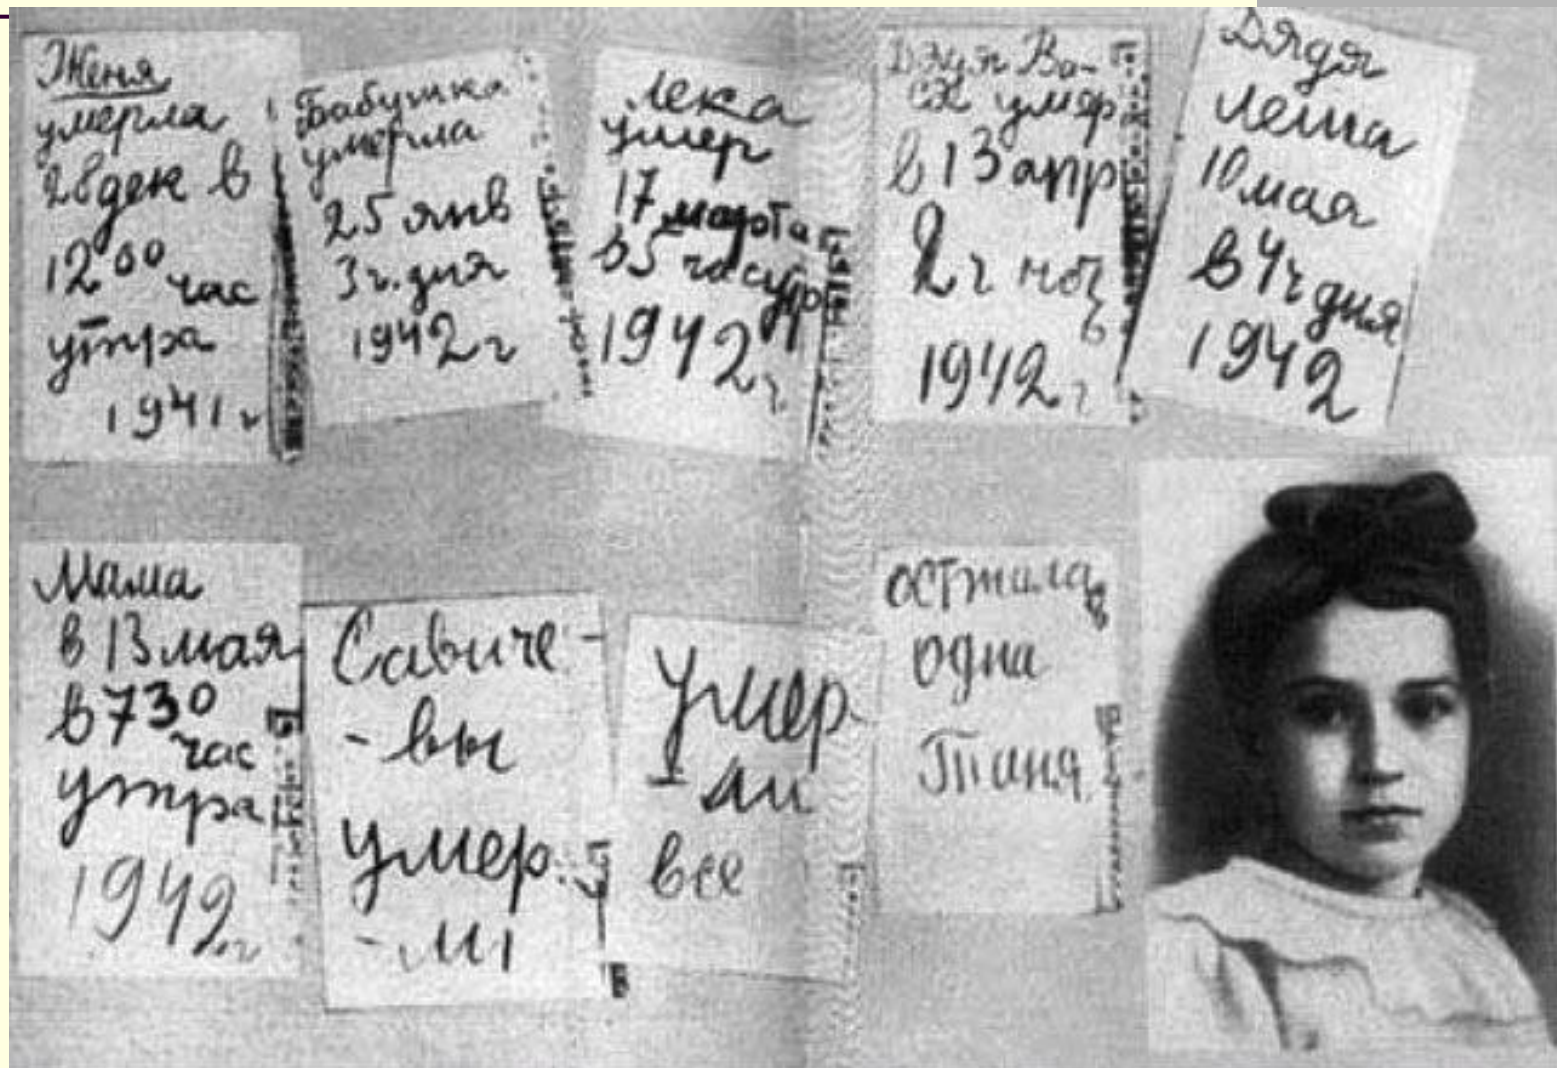 Женя
умерла
28 дек в
12 00 час
утра
1941 г
Бабушка
умерла
25 янв
3 ч. дня
1942 г
Лека
умер
17 марта
в 5 час утр
1942 г.
Дядя Ва-
ся умер
в 13 апр
2 ч ноч
1942 г
Дядя
Леша
10 мая
в 4 ч дня
1942
Мама
в 13 мая
в 7 30
час
утра
1942 г
Савиче-
-вы
умер
-ли
Умер
-ли
все
Осталась
одна
Таня